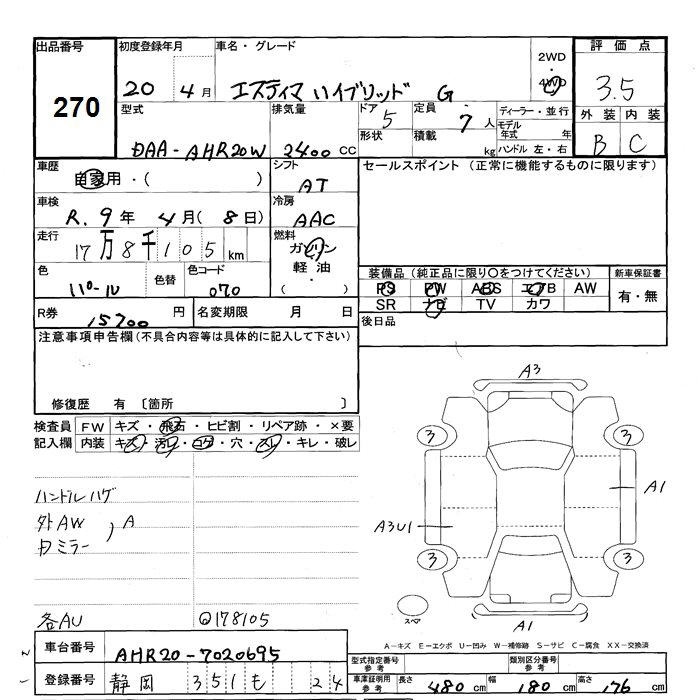 出品番号 初度登録年月 車名・グレード 2WD・4WD 評価点
270 20 4月 エスティマ ハイブリッド G 3.5
型式 排気量 ドア 5 定員 7人 ディーラー・並行
形状 積載 kg モデル年式 年 外装 内装
DAA-AHR20W 2400 CC ハンドル 左・右 B C
車歴 自家用・( ) シフト AT セールスポイント (正常に機能するものに限ります)
車検 R. 9年 4月( 8日) 冷房 AAC
走行 17万8千105 km 燃料 ガソリン・軽油・( )
色 パール 色替 色コード 070
装備品 (純正品に限り○をつけてください) 新車保証書
PS PW ABS エアB AW 有・無
SR ナビ TV カワ
R券 15700円 名変期限 月 日 後日品
注意事項申告欄 (不具合内容等は具体的に記入して下さい)
修復歴 有 〔箇所 〕
検査員 FW キズ・飛石・ヒビ割・リペア跡・×要
記入欄 内装 キズ・汚レ・コゲ・穴・スレ・キレ・破レ
ハンドルハゲ
外AW
ミラー , A
各AU ◎178105
A3
3 3
A1
A3U1
3 3
スペア
A1
A-キズ E-エクボ U-凹み W-補修跡 S-サビ C-腐食 XX-交換済
車台番号 AHR20-7020695 型式指定番号 参考 類別区分番号 参考
登録番号 静岡 351 も 24 車庫証明用 参考 長さ 480cm 幅 180cm 高さ 176cm